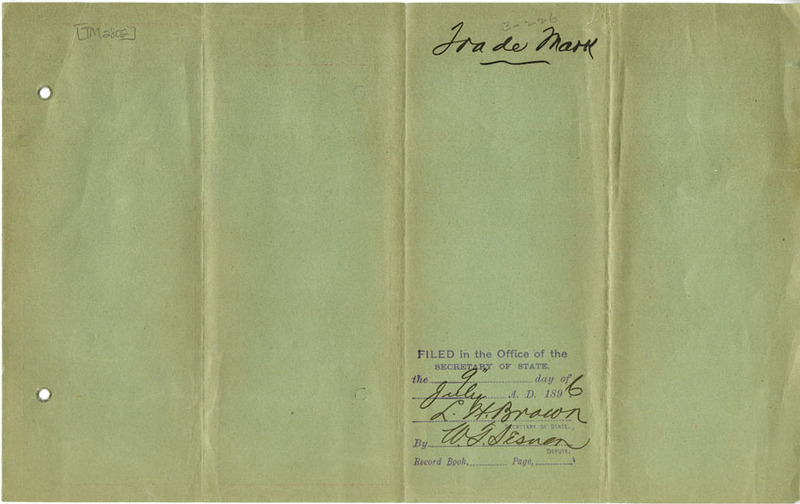 [TM 2802]
3-226
Trade Mark
FILED in the Office of the
SECRETARY OF STATE.
the 9" day of
July A. D. 1896
L. H. Brown
SECRETARY OF STATE.
By W. T. Sesnon
DEPUTY.
Record Book, Page,